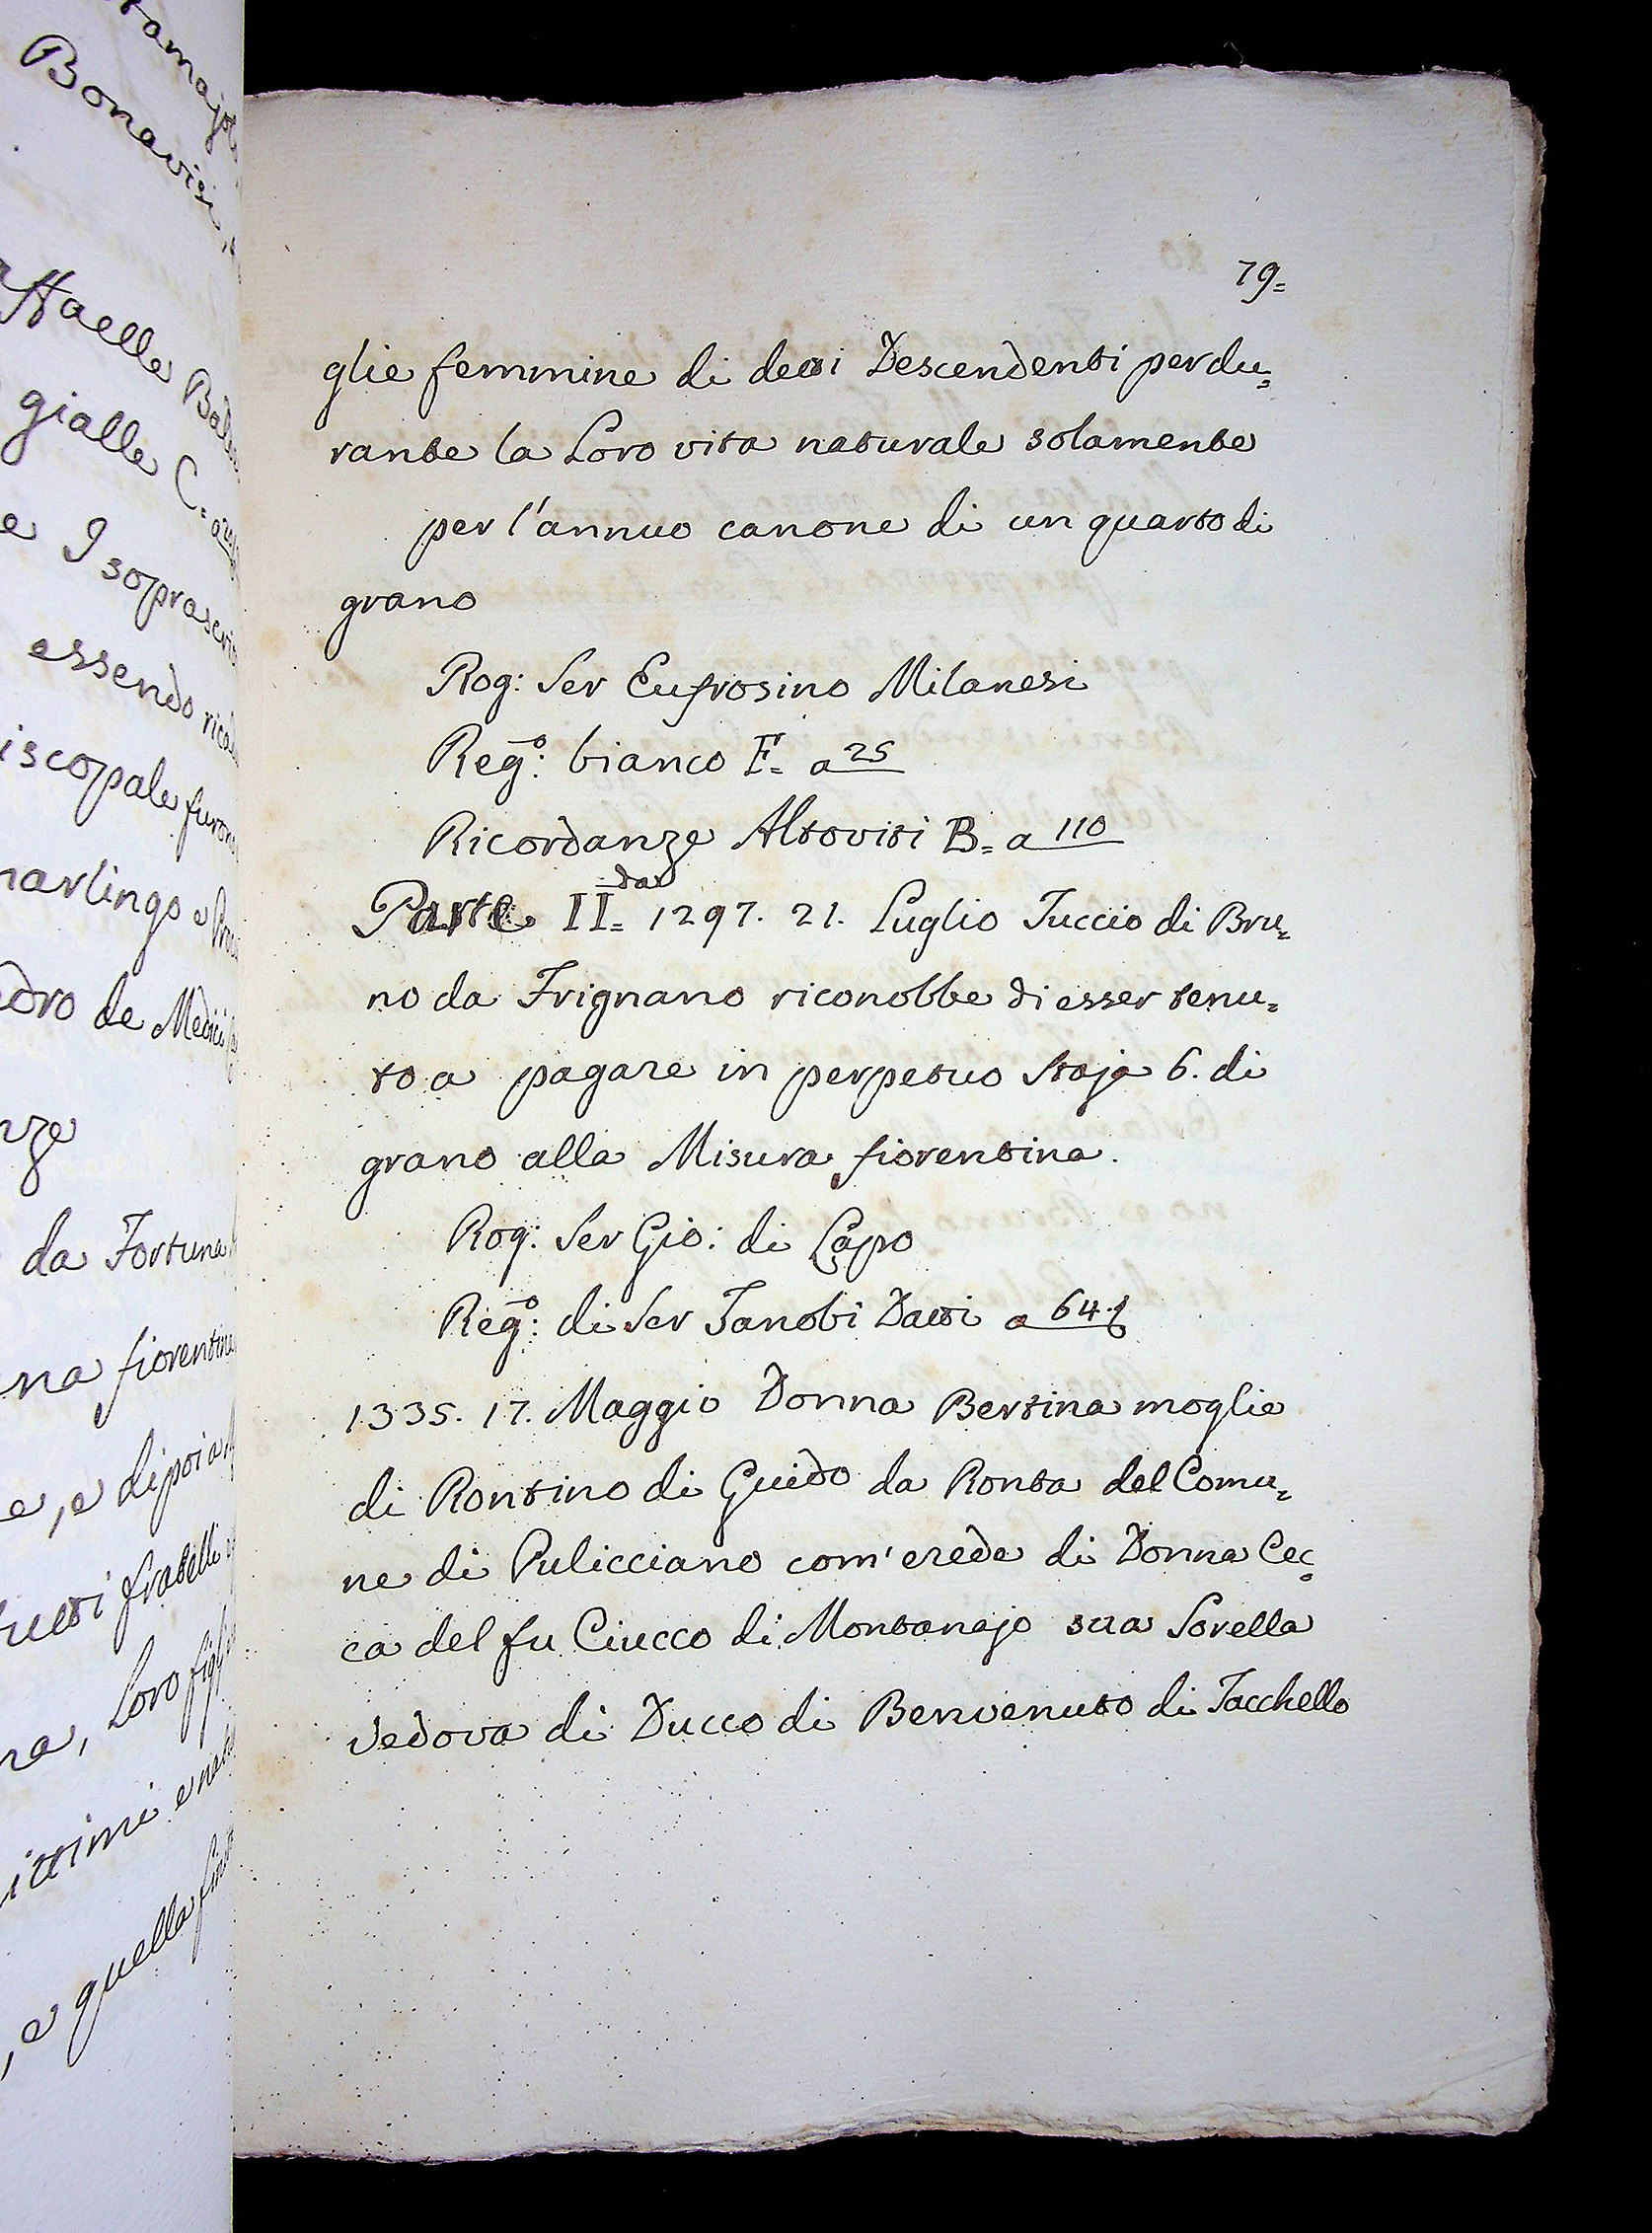 79=
glie femmine di detti Descendenti perdu=
rante la Loro vita naturale solamente
per l'annuo canone di un quarto di
grano
Rog: Ser Eufrosino Milanesi
Reg.º: bianco F= a 25
Ricordanze Altoviti B= a 110
Parte II=da 1297. 21. Luglio Tuccio di Bru=
no da Frignano riconobbe di esser tenu=
to a pagare in perpetuo Staja 6. di
grano alla Misura fiorentina.
Rog: Ser Gio: di Lapo
Reg.º: di Ser Zanobi Datti a 64.
1335. 17. Maggio Donna Bertina moglie
di Rontino di Guido da Ronta del Comu=
ne di Pulicciano com' erede di Donna Cec=
ca del fu Ciucco di Montanajo sua Sorella
Vedova di Ducco di Benvenuto di Tacchello
Bonavisi
gialle C.
essendo
de Medici
da Fortuna
na fiorentina
e, e dipoi a
fratelli
na, Loro
e quella